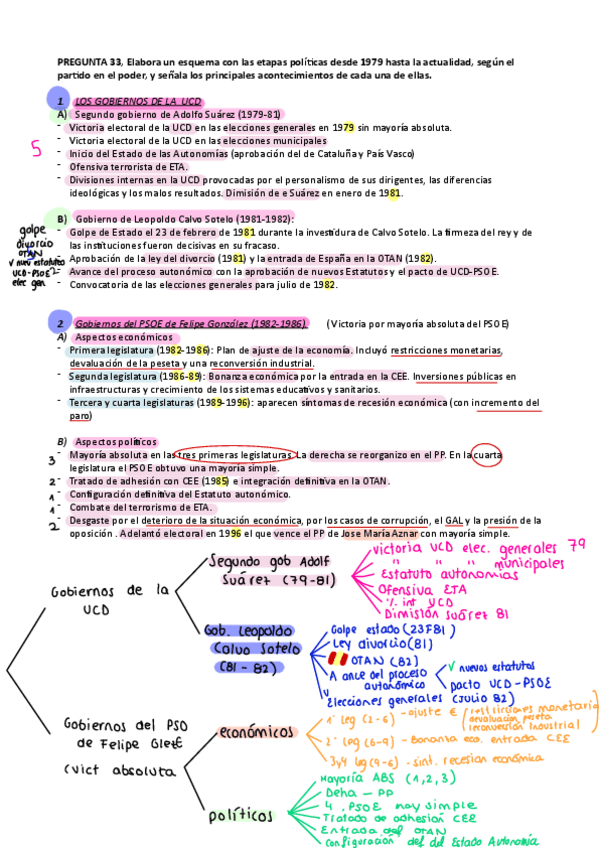 PREGUNTA 33, Elabora un esquema con las etapas políticas desde 1979 hasta la actualidad, según el
partido en el poder, y señala los principales acontecimientos de cada una de ellas.
1. LOS GOBIERNOS DE LA UCD
A) Segundo gobierno de Adolfo Suárez (1979-81)
- Victoria electoral de la UCD en las elecciones generales en 1979 sin mayoría absoluta.
- Victoria electoral de la UCD en las elecciones municipales
5
- Inicio del Estado de las Autonomías (aprobación del de Cataluña y País Vasco)
- Ofensiva terrorista de ETA.
- Divisiones internas en la UCD provocadas por el personalismo de sus dirigentes, las diferencias
ideológicas y los malos resultados. Dimisión de e Suárez en enero de 1981.
B) Gobierno de Leopoldo Calvo Sotelo (1981-1982):
golpe
divorcio
OTAN
√ nuev estatutos
UCD-PSOE
elec gen
- Golpe de Estado el 23 de febrero de 1981 durante la investidura de Calvo Sotelo. La firmeza del rey y de
las instituciones fueron decisivas en su fracaso.
- Aprobación de la ley del divorcio (1981) y la entrada de España en la OTAN (1982).
- Avance del proceso autonómico con la aprobación de nuevos Estatutos y el pacto de UCD-PSOE.
- Convocatoria de las elecciones generales para julio de 1982.
2. Gobiernos del PSOE de Felipe González (1982-1986). (Victoria por mayoría absoluta del PSOE)
A) Aspectos económicos
- Primera legislatura (1982-1986): Plan de ajuste de la economía. Incluyó restricciones monetarias,
devaluación de la peseta y una reconversión industrial.
- Segunda legislatura (1986-89): Bonanza económica por la entrada en la CEE. Inversiones públicas en
infraestructuras y crecimiento de los sistemas educativos y sanitarios.
- Tercera y cuarta legislaturas (1989-1996): aparecen síntomas de recesión económica (con incremento del
paro)
B) Aspectos políticos
3 - Mayoría absoluta en las tres primeras legislaturas. La derecha se reorganizo en el PP. En la cuarta
legislatura el PSOE obtuvo una mayoría simple.
2 - Tratado de adhesión con CEE (1985) e integración definitiva en la OTAN.
1 - Configuración definitiva del Estatuto autonómico.
1 - Combate del terrorismo de ETA.
2 - Desgaste por el deterioro de la situación económica, por los casos de corrupción, el GAL y la presión de la
oposición . Adelantó electoral en 1996 el que vence el PP de Jose María Aznar con mayoría simple.
Gobiernos de la
UCD
Segundo gob Adolf
Suárez (79-81)
victoria UCD elec. generales 79
" " " municipales
Estatuto autonomías
Ofensiva ETA
int UCD
Dimisión Suárez 81
Gob. Leopoldo
Calvo Sotelo
(81 - 82)
Golpe estado (23F81)
Ley divorcio (81)
OTAN (82)
A ance del proceso
autonómico
√ nuevos estatutos
pacto UCD-PSOE
Elecciones generales (Julio 82)
Gobiernos del PSO
de Felipe
(vict absoluta
económicos
1ª leg (2-6) - ajuste €
restricciones monetaria
devaluación peseta
reconversión industrial
2ª leg (6-9) - Bonanza eco. entrada CEE
3y4 leg (9-6) - sint. recesion económica
políticos
Mayoría ABS (1,2,3)
Deha - PP
4. PSOE may simple
Tratado de adhesión CEE
Entrada def OTAN
Configuración def del Estado Autonomía